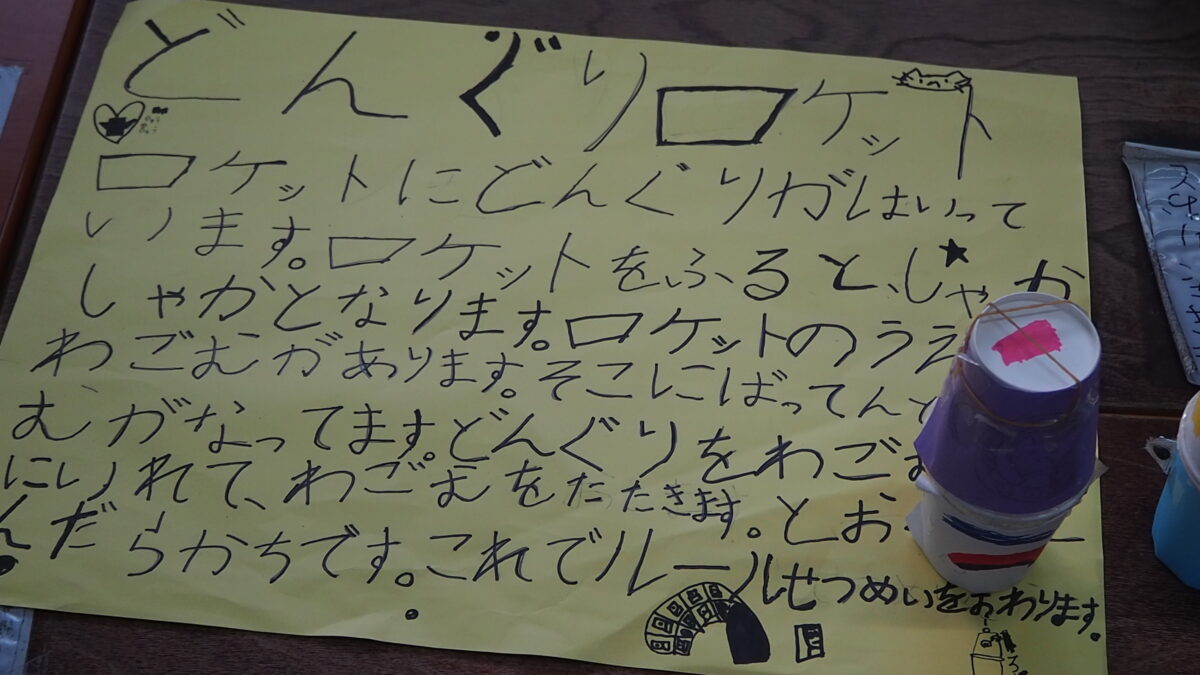 どんぐりロケット
ロケットにどんぐりがはいって
います。ロケットをふると、じゃか
しゃかとなります。ロケットのうえ
わごむがあります。そこにばってん
むがなってます。どんぐりをわご
にいれて、わごむをたたきます。とお
んだらかちです。これでルールせつめいをおわります。